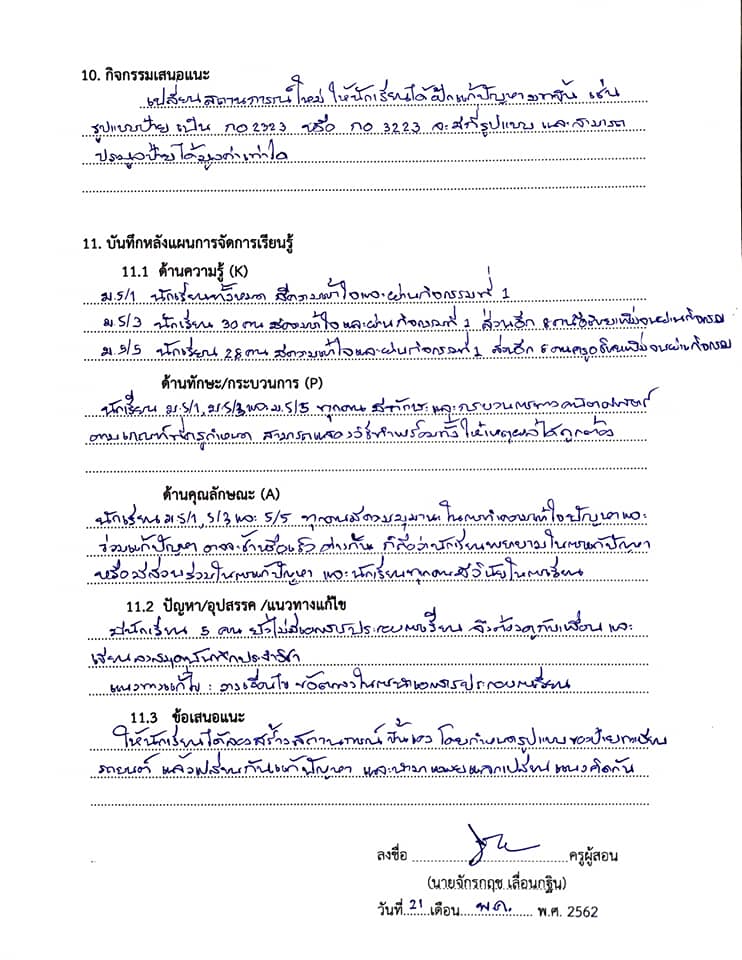 10. กิจกรรมเสนอแนะ
เปลี่ยนสถานการณ์ใหม่ ให้นักเรียนได้ฝึกแก้ปัญหามากขึ้น เช่น
รูปแบบป้าย เป็น กอ 2323 หรือ กอ 3223 จะมีกี่รูปแบบ และสามารถ
ประมูลป้ายได้มูลค่าเท่าใด
11. บันทึกหลังแผนการจัดการเรียนรู้
11.1 ด้านความรู้ (K)
ม.5/1 นักเรียนทั้งหมด มีความเข้าใจและผ่านกิจกรรมที่ 1
ม.5/3 นักเรียน 30 คน มีความเข้าใจและผ่านกิจกรรมที่ 1 ส่วนอีก 8 คน เพิ่มจนผ่านกิจกรรม
ม.5/5 นักเรียน 28 คน มีความเข้าใจและผ่านกิจกรรมที่ 1 ส่วนอีก 6 คนครูอธิบายเพิ่มจนผ่านกิจกรรม
ด้านทักษะ/กระบวนการ (P)
นักเรียน ม.5/1, ม.5/3 และ ม.5/5 ทุกคน มีทักษะและกระบวนการทางคณิตศาสตร์
ตามเกณฑ์ที่ครูกำหนด สามารถแสดงวิธีทำพร้อมทั้งให้เหตุผลได้ถูกต้อง
ด้านคุณลักษณะ (A)
นักเรียน ม.5/1, 5/3 และ 5/5 ทุกคนมีความมุมานะในการทำความเข้าใจปัญหาและ
ร่วมแก้ปัญหา อาจจะช้าหรือเร็ว ต่างกัน ก็ถือว่านักเรียนพยายามในการแก้ปัญหา
หรือมีส่วนร่วมในการแก้ปัญหา และนักเรียนทุกคนมีวินัยในการเรียน
11.2 ปัญหา/อุปสรรค /แนวทางแก้ไข
มีนักเรียน 5 คน ยังไม่มีเอกสารประกอบการเรียน จึงต้องดูกับเพื่อน และ
เขียนลงสมุดบันทึกประจำวิชา
แนวทางแก้ไข : วางเงื่อนไข ข้อตกลงในการนำเอกสารประกอบการเรียน
11.3 ข้อเสนอแนะ
ให้นักเรียนได้ลองสร้างสถานการณ์ขึ้นเอง โดยกำหนดรูปแบบของป้ายทะเบียน
รถยนต์ แล้วเปลี่ยนกันแก้ปัญหา และนำมาเฉลยแลกเปลี่ยนแนวคิดกัน
ลงชื่อ ครูผู้สอน
(นายจักรกฤช เลื่อนกฐิน)
วันที่ 21 เดือน พ.ค. พ.ศ. 2562